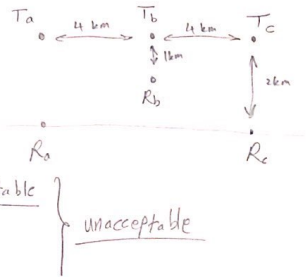 Ta 4 km Tb 4 km Tc
1km
Rb
2km
Ra Rc
table
unacceptable